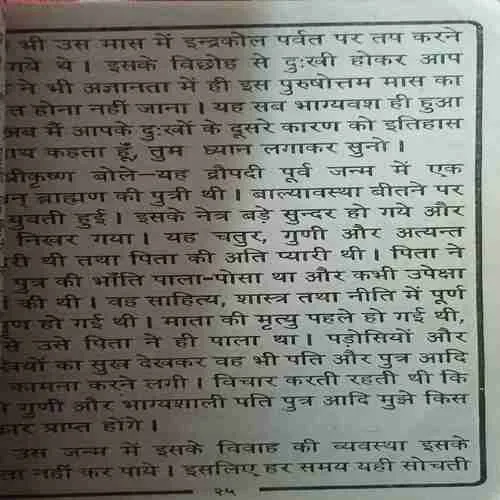 भी उस मास में इन्द्रकोल पर्वत पर तप करने
गये थे । इसके विछोह से दुःखी होकर आप
ने भी अज्ञानता में ही इस पुरुषोत्तम मास का
होना नहीं जाना । यह सब भाग्यवश ही हुआ
अब मैं आपके दुःखों के दूसरे कारण को इतिहास
कहता हूँ, तुम ध्यान लगाकर सुनो ।
बोले—यह द्रौपदी पूर्व जन्म में एक
ब्राह्मण की पुत्री थी । बाल्यावस्था बीतने पर
युवती हुई । इसके नेत्र बड़े सुन्दर हो गये और
निखर गया । यह चतुर, गुणी और अत्यन्त
थी तथा पिता की अति प्यारी थी । पिता ने
पुत्र की भाँति पाला-पोसा था और कभी उपेक्षा
की थी । वह साहित्य, शास्त्र तथा नीति में पूर्ण
हो गई थी । माता की मृत्यु पहले हो गई थी,
उसे पिता ने ही पाला था । पड़ोसियों और
का सुख देखकर वह भी पति और पुत्र आदि
कामना करने लगी । विचार करती रहती थी कि
गुणी और भाग्यशाली पति पुत्र आदि मुझे किस
प्राप्त होगे ।
उस जन्म में इसके विवाह की व्यवस्था इसके
नहीं कर पाये । इसलिए हर समय यही सोचती
२५